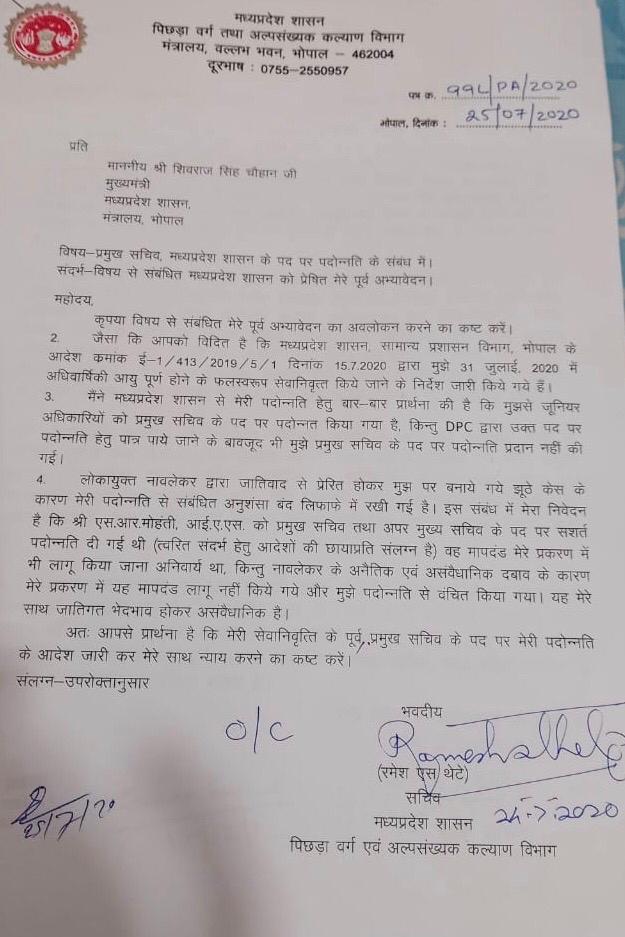 मध्यप्रदेश शासन
पिछड़ा वर्ग तथा अल्पसंख्यक कल्याण विभाग
मंत्रालय, वल्लभ भवन, भोपाल – 462004
दूरभाष : 0755–2550957
पत्र क्र. 99L/PA/2020
भोपाल, दिनांक : 25/07/2020
प्रति
माननीय श्री शिवराज सिंह चौहान जी
मुख्यमंत्री
मध्यप्रदेश शासन,
मंत्रालय, भोपाल
विषय–प्रमुख सचिव, मध्यप्रदेश शासन के पद पर पदोन्नति के संबंध में।
संदर्भ–विषय से संबंधित मध्यप्रदेश शासन को प्रेषित मेरे पूर्व अभ्यावेदन।
महोदय,
कृपया विषय से संबंधित मेरे पूर्व अभ्यावेदन का अवलोकन करने का कष्ट करें।
2. जैसा कि आपको विदित है कि मध्यप्रदेश शासन, सामान्य प्रशासन विभाग, भोपाल के
आदेश कमांक ई–1/413/2019/5/1 दिनांक 15.7.2020 द्वारा मुझे 31 जुलाई, 2020 में
अधिवार्षिकी आयु पूर्ण होने के फलस्वरूप सेवानिवृत्त किये जाने के निर्देश जारी किये गये हैं।
3. मैंने मध्यप्रदेश शासन से मेरी पदोन्नति हेतु बार–बार प्रार्थना की है कि मुझसे जूनियर
अधिकारियों को प्रमुख सचिव के पद पर पदोन्नत किया गया है, किन्तु DPC द्वारा उक्त पद पर
पदोन्नति हेतु पात्र पाये जाने के बावजूद भी मुझे प्रमुख सचिव के पद पर पदोन्नति प्रदान नहीं की
गई।
4. लोकायुक्त नावलेकर द्वारा जातिवाद से प्रेरित होकर मुझ पर बनाये गये झूठे केस के
कारण मेरी पदोन्नति से संबंधित अनुशंसा बंद लिफाफे में रखी गई है। इस संबंध में मेरा निवेदन
है कि श्री एस.आर.मोहंती, आई.ए.एस. को प्रमुख सचिव तथा अपर मुख्य सचिव के पद पर सशर्त
पदोन्नति दी गई थी (त्वरित संदर्भ हेतु आदेशों की छायाप्रति संलग्न है) वह मापदंड मेरे प्रकरण में
भी लागू किया जाना अनिवार्य था, किन्तु नावलेकर के अनैतिक एवं असंवैधानिक दबाव के कारण
मेरे प्रकरण में यह मापदंड लागू नहीं किये गये और मुझे पदोन्नति से वंचित किया गया। यह मेरे
साथ जातिगत भेदभाव होकर असंवैधानिक है।
अतः आपसे प्रार्थना है कि मेरी सेवानिवृत्ति के पूर्व, प्रमुख सचिव के पद पर मेरी पदोन्नति
के आदेश जारी कर मेरे साथ न्याय करने का कष्ट करें।
संलग्न–उपरोक्तानुसार
भवदीय
O/C
Rameshthete
(रमेश एस थेटे)
सचिव
25/7/20
मध्यप्रदेश शासन 24-7-2020
पिछड़ा वर्ग एवं अल्पसंख्यक कल्याण विभाग